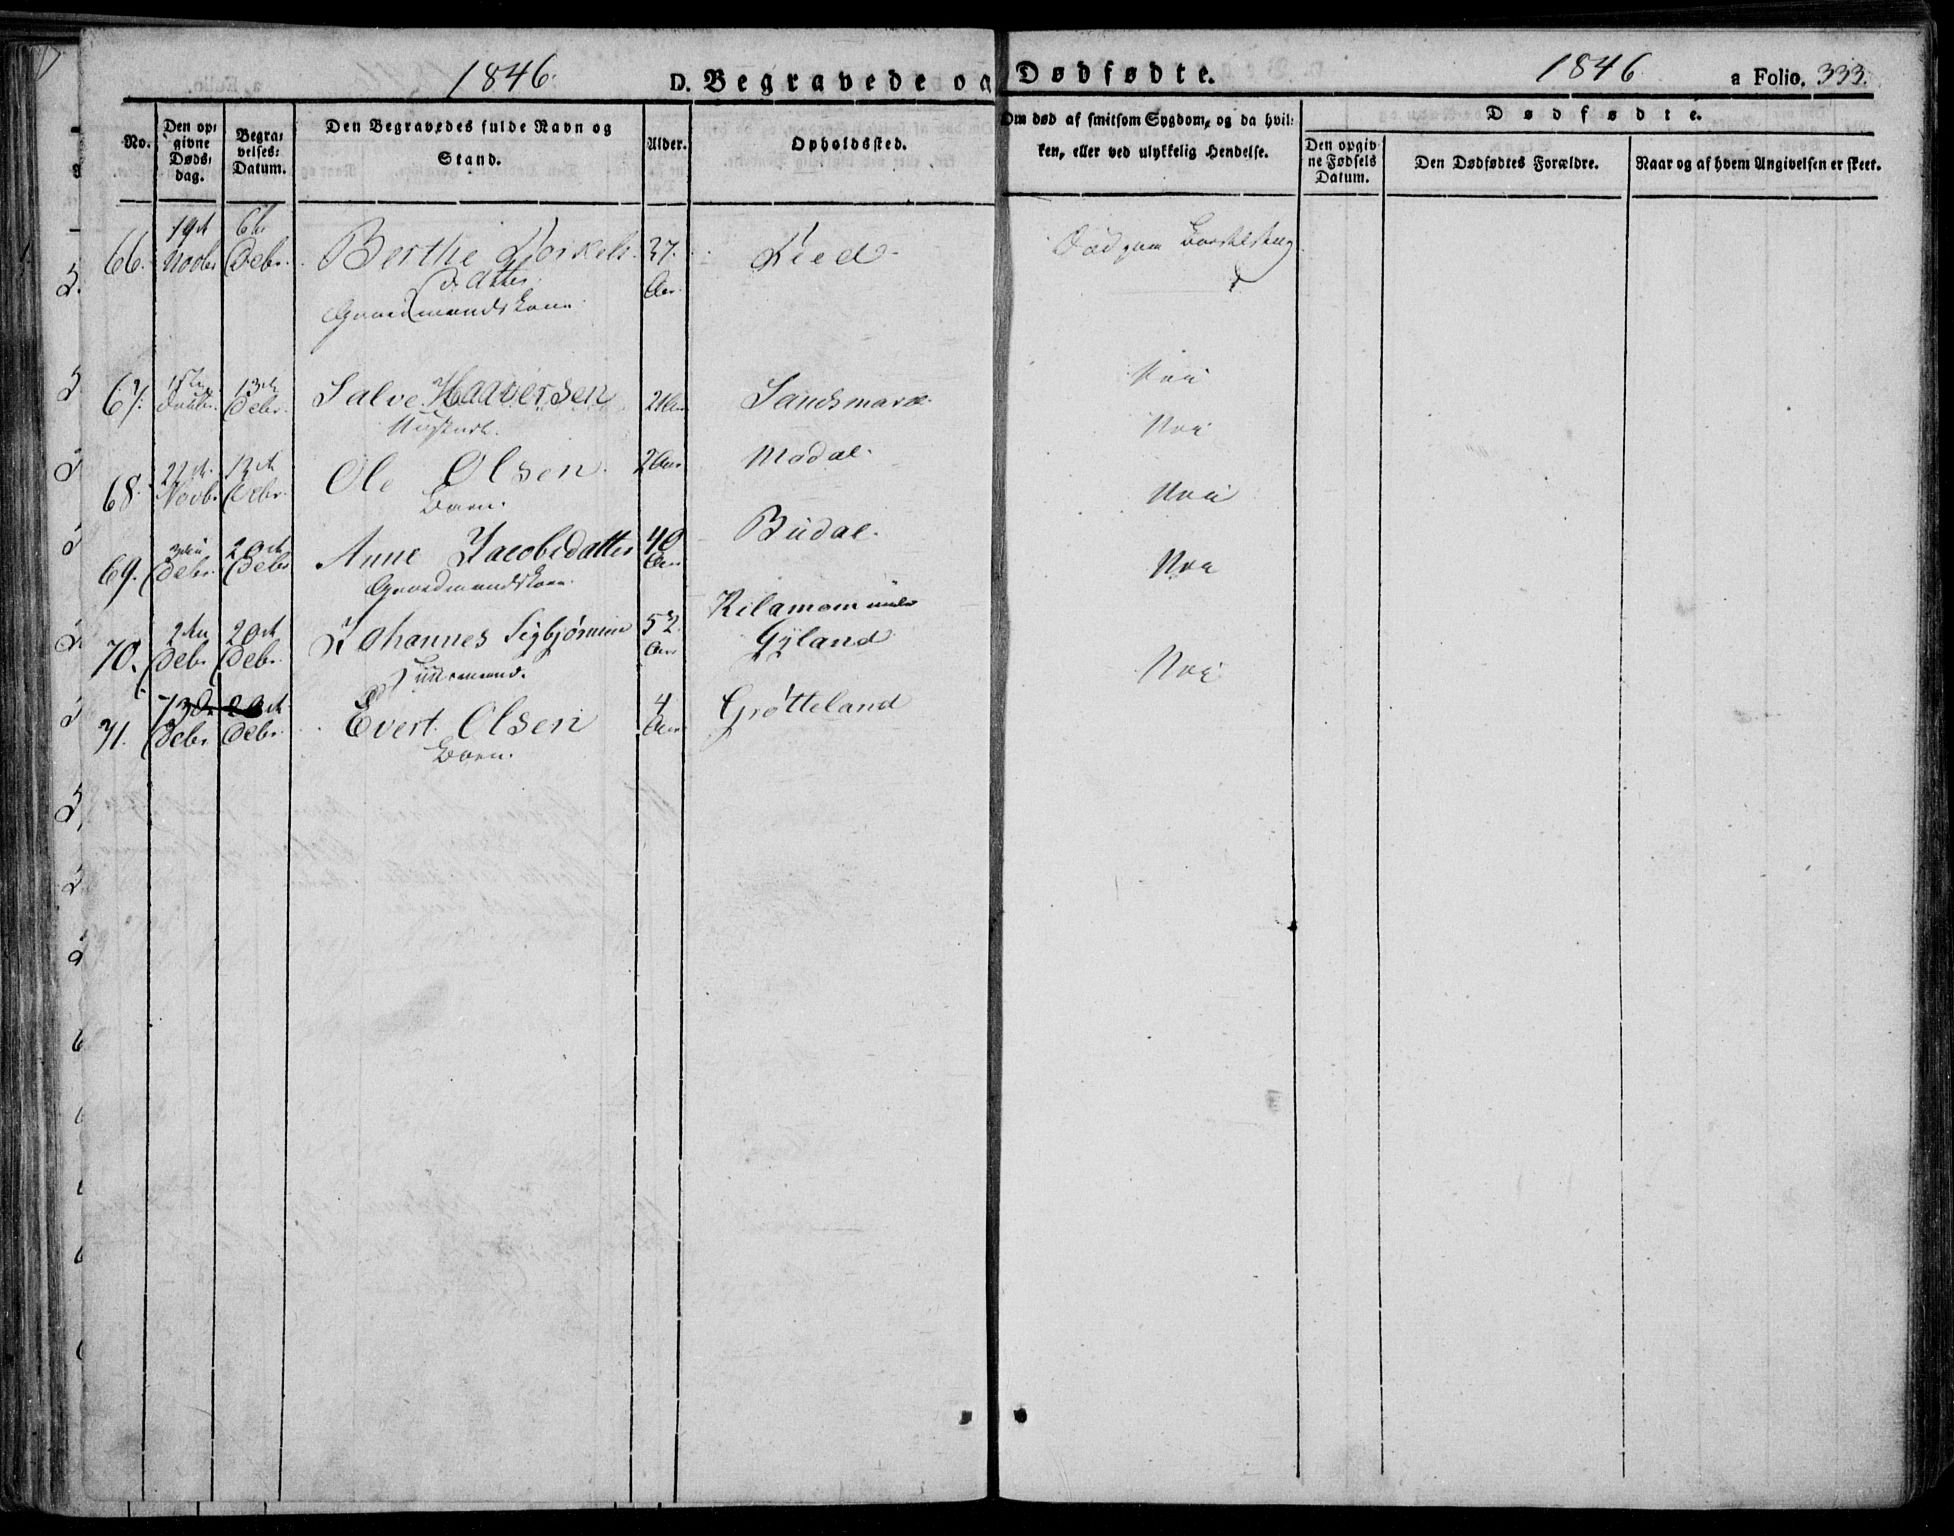 1846. D. Begravede og Dødfødte. 1846 a Folio. 333.
No. Den op: givne Døds: dag. Begra: velses: Datum. Den Begravedes fulde Navn og Stand. Alder. Opholdssted. Om død af smitsom Sygdom, og da hvil: ken, eller ved ulykkelig Hendelse. Dødfødte.
Den opgiv: ne Fødsels Datum. Den Dødfødtes Forældre. Naar og af hvem Angivelsen er skeet.
66. 19de Novbr 6te Debr. Berthe Torkels- 37. Død paa Barselseng
datter Aar
Gaardmandskone
67. Octbr. 13de Debr. Salve Haaversen Nei
68. 22de Novbr 13de Debr. Ole Olsen. 2 Aar Nei
Barn.
69. 3die Debr. 20de Debr Anne Jacobsdatter 40 Aar Budal. Nei
Gaardmandskone.
70. 2den Debr 20de Debr. Johannes Sigbjørnsen 52 Aar Nei
Gyland
Huusmand.
71. 13de Debr 20de Debr. Evert Olsen 4 Aar Grøtteland Nei
Barn.